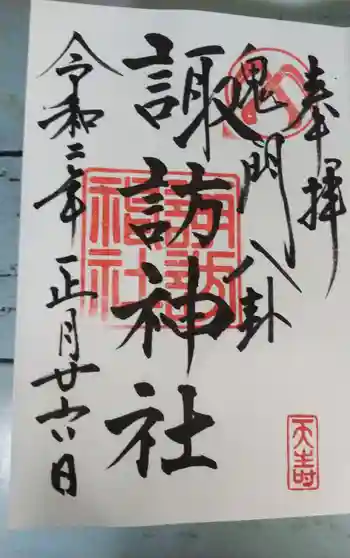 奉拝
鬼門八卦
諏訪神社
令和二年正月廿六日
諏訪
福社
天寿